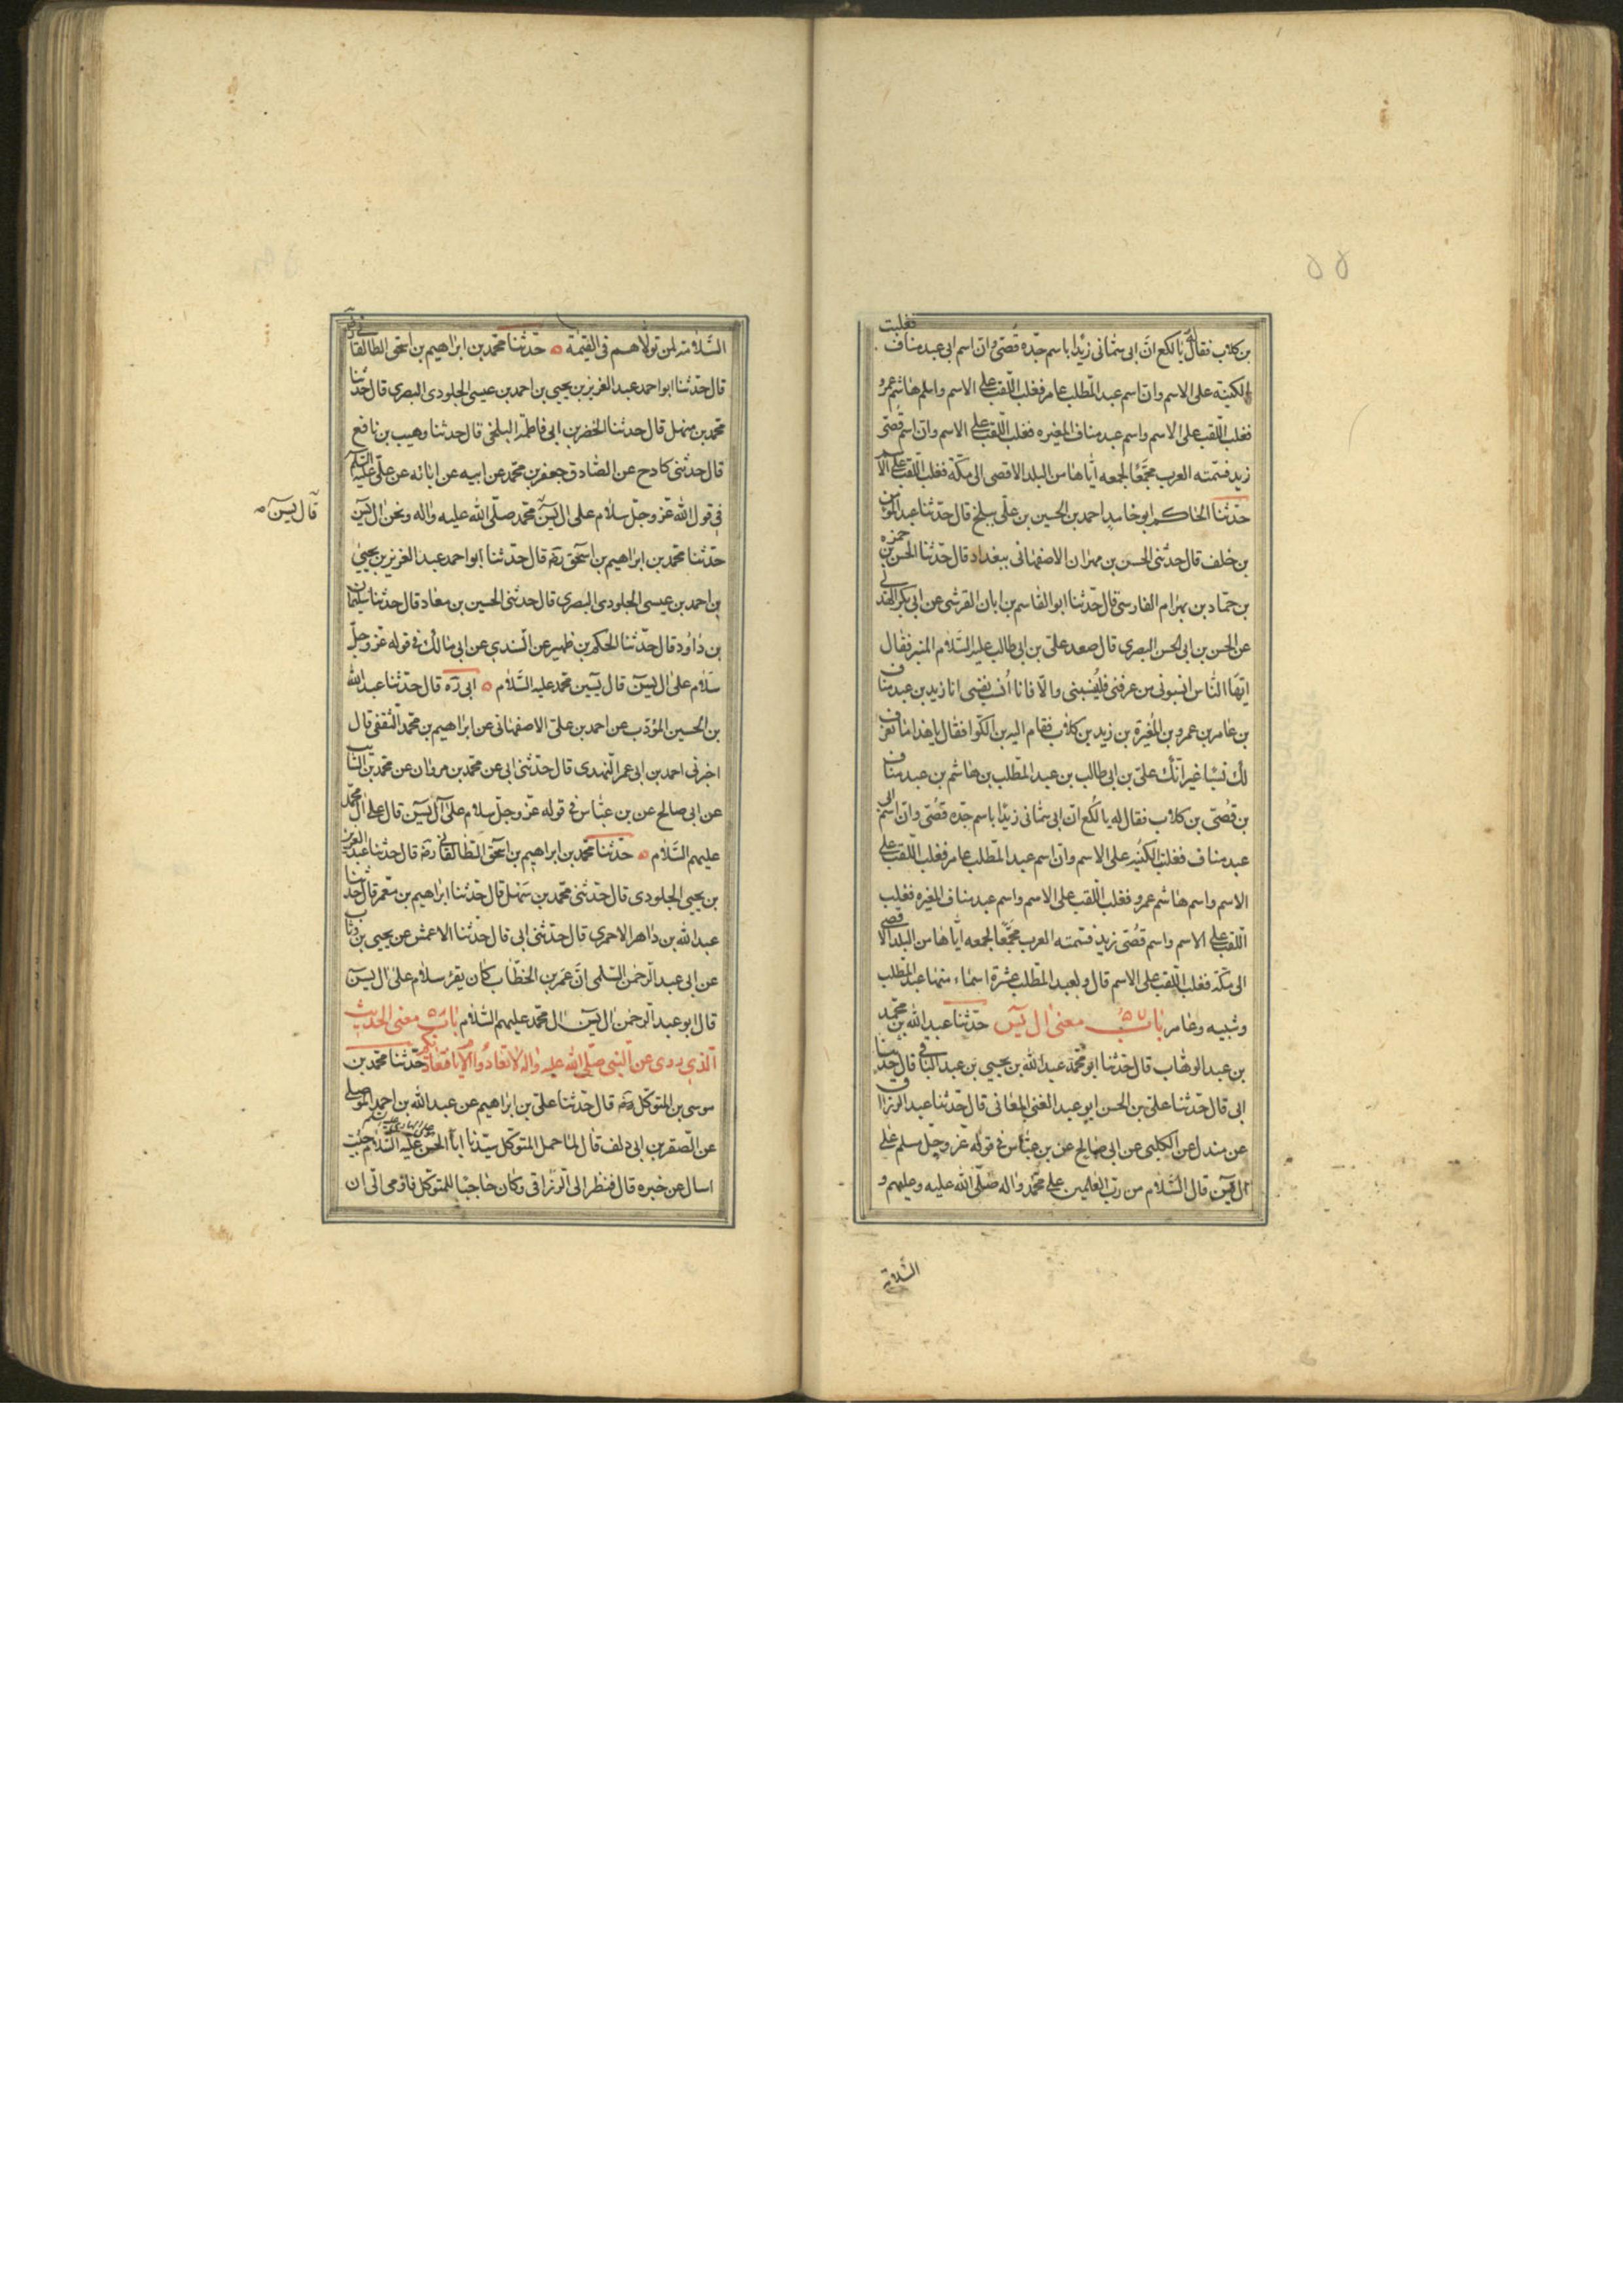 ٥٥
بن كلاب فقال له يا لكع انّ ابى سمّانى زيدا باسم جدّه قُصَىّ وانّ اسم ابى عبد مناف فغلبت
الكنية على الاسم وانّ اسم عبد المطّلب عامر فغلب اللّقب على الاسم واسم هاشم عمرو
فغلب اللّقب على الاسم واسم عبد مناف المغيره فغلب اللّقب على الاسم وانّ اسم قُصَىّ
زيد فسمّته العرب مجمّعًا لجمعه ايّاها من البلد الاقصى الى مكّة فغلب اللّقب على الا
حدّثنا الحاكم ابو حامد احمد بن الحسين بن علىّ ببلخ قال حدّثنا عبد المؤمن
بن خلف قال حدّثنى الحسن بن مهران الاصفهانى ببغداد قال حدّثنا الحسن بن حمزه
بن حمّاد بن بهرام الفارسىّ قال حدّثنا ابو القاسم بن ابان القرشى عن ابى بكر الهذلى
عن الحسن بن ابى الحسن البصرى قال صعد علىّ بن ابى طالب عليه السّلام المنبر فقال
ايّها النّاس انسبونى من عرفنى فلينسبنى والّا فانا اُنسب نفسى انا زيد بن عبد مناف
بن عامر بن عمرو بن المُغيرة بن زيد بن كلاب فقام اليه بن الكوّا فقال يا هذا ما نعرف
لك نسبًا غير انّك علىّ بن ابى طالب بن عبد المطّلب بن هاشم بن عبد مناف
بن قُصَىّ بن كلاب فقال له يا لُكَع انّ ابى سمّانى زيدًا باسم جدّه قُصَىّ وانّ اسم ابى
عبد مناف فغلبت الكُنيه على الاسم وانّ اسم عبد المطّلب عامر فغلب اللّقب على
الاسم واسم هاشم عمرو فغلب اللّقب على الاسم واسم عبد مناف المغيره فغلب
اللّقب على الاسم واسم قُصَىّ زيد فسمّته العرب مُجَمِّعًا لجمعه ايّاها من البلد الاقصى
الى مكّة فغلب اللّقب على الاسم قال ولعبد المطّلب عشرة اسماء منها عبد المطلب
وشيبه وعامر باب معنى ال يس حدّثنا عبد الله بن محمّد
بن عبد الوهّاب قال حدّثنا ابو محمّد عبد الله بن يحيى بن عبد الباقى قال حدّثنا
ابى قال حدّثنا علىّ بن الحسن ابو عبد الغنى المغانى قال حدّثنا عبد الرزاق
عن مندل عن الكلبى عن ابى صالح عن بن عبّاس فى قوله عزّ وجلّ سلم على
ال يس قال السّلام من ربّ العلمين على محمّد واله صلّى الله عليه وعليهم و
السّلامة
السّلامة لمن تولّاهم فى القيٰمة حدّثنا محمّد بن ابراهيم بن اسحق الطالقانى
قال حدّثنا ابو احمد عبد العزيز بن يحيى بن احمد بن عيسى الجلودى البصرى قال حدّثنا
محمّد بن سهل قال حدّثنا الخضر بن ابى فاطمة البلخى قال حدثنا وهيب بن نافع
قال حدّثنى كادح عن الصّادق جعفر بن محمّد عن ابيه عن ابائه عن علىّ عليه السّلم
فى قول الله عزّ وجلّ سلام على ال يس محمّد صلّى الله عليه واله ونحن ال يس
قال يس
حدّثنا محمّد بن ابراهيم بن اسحق رحمه قال حدّثنا ابو احمد عبد العزيز بن يحيى
بن احمد بن عيسى الجلودى البصرى قال حدثنى الحسين بن معاد قال حدثنا سليمان
بن داود قال حدّثنا الحكم بن ظهير عن السّدى عن ابى مالك فى قوله عزّ وجلّ
سلام على ال يس قال يسين محمّد عليه السّلام ابى ره قال حدّثنا عبد الله
بن الحسين المؤدّب عن احمد بن علىّ الاصفهانى عن ابراهيم بن محمّد الثّقفى قال
اخبرنى احمد بن ابى عمر النّهدى قال حدّثنى ابى عن محمّد بن مروان عن محمّد بن السّايب
عن ابى صالح عن بن عبّاس فى قوله عزّ وجلّ سلام على آل يس قال على ال محمّد
عليهم السّلام حدّثنا محمّد بن ابراهيم بن اسحق الطالقانى رحمه قال حدثنا عبد العزيز
بن يحيى الجلودى قال حدّثنى محمّد بن سهل قال حدّثنا ابراهيم بن معمر قال حدّثنا
عبد الله بن داهر الاحمرى قال حدّثنى ابى قال حدّثنا الاعمش عن يحيى بن وثاب
عن ابى عبد الرّحمن السّلمى انّ عمر بن الخطّاب كان يقرء سلام على ال يس
قال ابو عبد الرّحمن ال يس ال محمّد عليهم السّلام باب معنى الحديث
الّذى روى عن النّبى صلّى الله عليه واله لا تعادُوا الايّام فتعاديكم حدّثنا محمّد بن
موسى بن المتوكّل رحمه قال حدّثنا علىّ بن ابراهيم عن عبد الله بن احمد الموصلى
عن الصّقر بن ابى دلف قال لمّا حمل المتوكّل سيّدنا ابا الحسن عليه السّلام جئت
اسال عن خبره قال فنظر الى الرّزاقى وكان حاجبا للمتوكّل فاومى الىّ ان